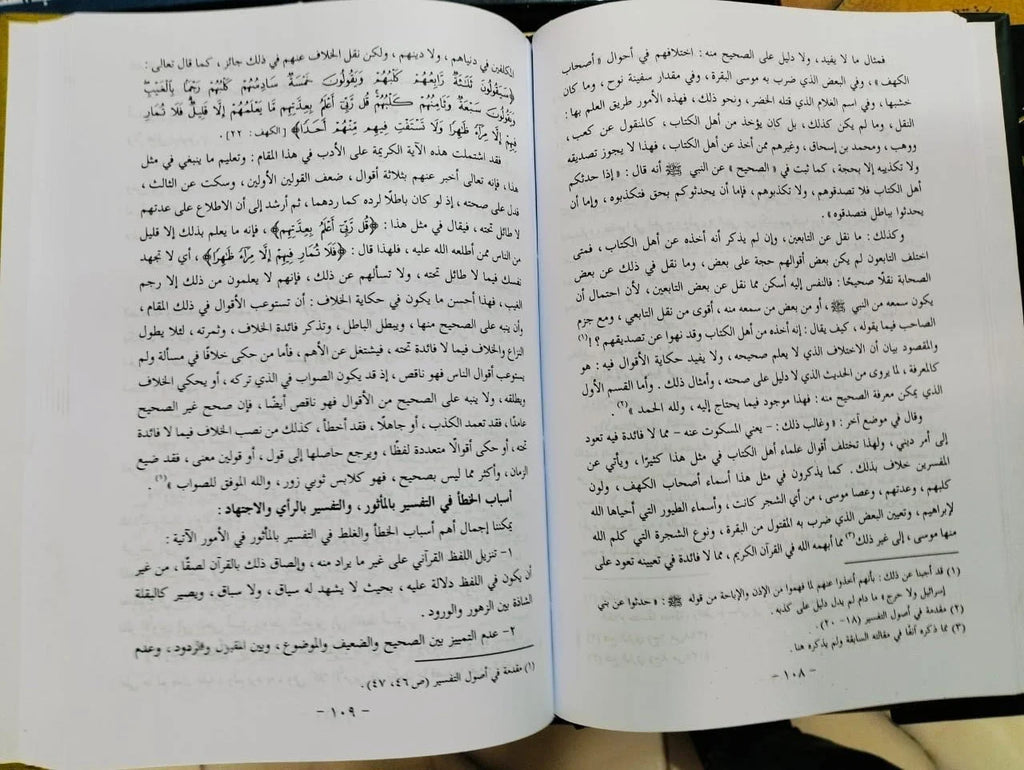 فمثال ما لا يفيد، ولا دليل على الصحيح منه : اختلافهم في أحوال « أصحاب
الكهف » ، وفي البعض الذي ضرب به موسى البقرة ، وفي مقدار سفينة نوح ، وما كان
خشبها ، وفي اسم الغلام الذي قتله الخضر ، ونحو ذلك ، فهذه الأمور طريق العلم بها :
النقل ، وما لم يكن كذلك ، بل كان يؤخذ من أهل الكتاب ، كالمنقول عن كعب ،
ووهب ، ومحمد بن إسحاق ، وغيرهم ممن أخذ عن أهل الكتاب ، فهذا لا يجوز تصديقه
ولا تكذيبه إلا بحجة ، كما ثبت في « الصحيح » عن النبي ﷺ أنه قال : « إذا حدثكم
أهل الكتاب فلا تصدقوهم ، ولا تكذبوهم ، فإما أن يحدثوكم بحق فتكذبوه ، وإما أن
يحدثوا بباطل فتصدقوه » .
وكذلك : ما نقل عن التابعين ، وإن لم يذكر أنه أخذه عن أهل الكتاب ، فمتى
اختلف التابعون لم يكن بعض أقوالهم حجة على بعض ، وما نقل في ذلك عن بعض
الصحابة نقلًا صحيحًا : فالنفس إليه أسكن مما نقل عن بعض التابعين ، لأن احتمال أن
يكون سمعه من النبي ﷺ ، أو من بعض من سمعه منه ، أقوى من نقل التابعي ، ومع جزم
الصاحب فيما يقوله ، كيف يقال : إنه أخذه من أهل الكتاب وقد نهوا عن تصديقهم ؟ !(١)
والمقصود بيان أن الاختلاف الذي لا يعلم صحيحه ، ولا يفيد حكاية الأقوال فيه : هو
كالمعرفة ، لما يروى من الحديث الذي لا دليل على صحته ، وأمثال ذلك . وأما القسم الأول
الذي يمكن معرفة الصحيح منه : فهذا موجود فيما يحتاج إليه ، ولله الحمد »(٢) .
وقال في موضع آخر : « وغالب ذلك : - يعني المسكوت عنه - مما لا فائدة فيه تعود
إلى أمر ديني ، ولهذا تختلف أقوال علماء أهل الكتاب في مثل هذا كثيرًا ، ويأتي عن
المفسرين خلاف بذلك . كما يذكرون في مثل هذا أسماء أصحاب الكهف ، ولون
كلبهم ، وعدتهم ، وعصا موسى ، من أي الشجر كانت ، وأسماء الطيور التي أحياها الله
لإبراهيم ، وتعيين البعض الذي ضرب به المقتول من البقرة ، ونوع الشجرة التي كلم الله
منها موسى ، إلى غير ذلك(٣) مما أبهمه الله في القرآن الكريم ، مما لا فائدة في تعيينه تعود على
(١) قد أجبنا عن ذلك : بأنهم أخذوا عنهم لما فهموا من الإذن والإباحة من قوله ﷺ : « حدثوا عن بني
إسرائيل ولا حرج » ما دام لم يدل دليل على كذبه .
(٢) مقدمة في أصول التفسير (١٨- ٢٠) .
(٣) مما ذكره آنفًا في مقالته السابقة ولم يذكره هنا .
- ١٠٨ -
المكلفين في دنياهم ، ولا دينهم ، ولكن نقل الخلاف عنهم في ذلك جائز ، كما قال تعالى :
﴿سَيَقُولُونَ ثَلَٰثَةٌ رَّابِعُهُمْ كَلْبُهُمْ وَيَقُولُونَ خَمْسَةٌ سَادِسُهُمْ كَلْبُهُمْ رَجْمًۢا بِالْغَيْبِ
وَيَقُولُونَ سَبْعَةٌ وَثَامِنُهُمْ كَلْبُهُمْ قُل رَّبِّىٓ أَعْلَمُ بِعِدَّتِهِم مَّا يَعْلَمُهُمْ إِلَّا قَلِيلٌ فَلَا تُمَارِ
فِيهِمْ إِلَّا مِرَآءً ظَٰهِرًا وَلَا تَسْتَفْتِ فِيهِم مِّنْهُمْ أَحَدًا﴾ [الكهف : ٢٢] .
فقد اشتملت هذه الآية الكريمة على الأدب في هذا المقام : وتعليم ما ينبغي في مثل
هذا ، فإنه تعالى أخبر عنهم بثلاثة أقوال ، ضعف القولين الأولين ، وسكت عن الثالث ،
فدل على صحته ، إذ لو كان باطلًا لرده كما ردهما ، ثم أرشد إلى أن الاطلاع على عدتهم
لا طائل تحته ، فيقال في مثل هذا : ﴿قُل رَّبِّىٓ أَعْلَمُ بِعِدَّتِهِم﴾ ، فإنه ما يعلم بذلك إلا قليل
من الناس ممن أطلعه الله عليه ، فلهذا قال : ﴿فَلَا تُمَارِ فِيهِمْ إِلَّا مِرَآءً ظَٰهِرًا﴾ ، أي لا تجهد
نفسك فيما لا طائل تحته ، ولا تسألهم عن ذلك ، فإنهم لا يعلمون من ذلك إلا رجم
الغيب ، فهذا أحسن ما يكون في حكاية الخلاف : أن تستوعب الأقوال في ذلك المقام ،
وأن ينبه على الصحيح منها ، ويبطل الباطل ، وتذكر فائدة الخلاف ، وثمرته ، لئلا يطول
النزاع والخلاف فيما لا فائدة تحته ، فيشتغل عن الأهم ، فأما من حكى خلافًا في مسألة ولم
يستوعب أقوال الناس فهو ناقص ، إذ قد يكون الصواب في الذي تركه ، أو يحكي الخلاف
ويطلقه ، ولا ينبه على الصحيح من الأقوال فهو ناقص أيضًا ، فإن صحح غير الصحيح
عامدًا ، فقد تعمد الكذب ، أو جاهلًا ، فقد أخطأ ، كذلك من نصب الخلاف فيما لا فائدة
تحته ، أو حكى أقوالًا متعددة لفظًا ، ويرجع حاصلها إلى قول ، أو قولين معنى ، فقد ضيع
الزمان ، وأكثر مما ليس بصحيح ، فهو كلابس ثوبي زور ، والله الموفق للصواب »(١) .
أسباب الخطأ في التفسير بالمأثور ، والتفسير بالرأي والاجتهاد :
يمكننا إجمال أهم أسباب الخطأ والغلط في التفسير بالمأثور في الأمور الآتية :
١- تنزيل اللفظ القرآني على غير ما يراد منه ، وإلصاق ذلك بالقرآن لصقًا ، من غير
أن يكون في اللفظ دلالة عليه ، بحيث لا يشهد له سياق ، ولا سباق ، ويصير كالبقلة
الشاذة بين الزهور والورود .
٢- عدم التمييز بين الصحيح والضعيف والموضوع ، وبين المقبول والمردود ، وعدم
(١) مقدمة في أصول التفسير (ص ٤٦، ٤٧) .
- ١٠٩ -